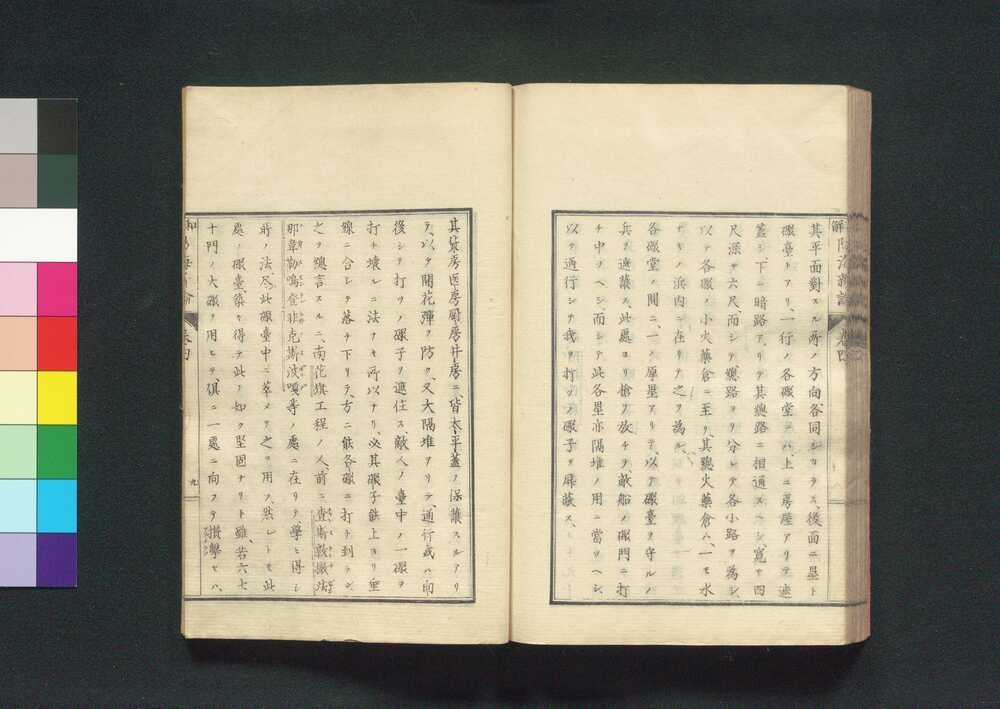 其平面對スル所ノ方向、各同シカラス、後面ニ壘ト
礮臺トアリ、一行ノ各礮堂ニハ、上ニ房屋アリテ遮
蓋シ、下ニ暗路アリテ其總路ニ相通スヘシ、寛サ四
尺深サ六尺、而シテ總路ヨリ分レテ各小路ヲ為シ、
以テ各礮ノ小火藥倉ニ至ル、其總火藥倉ハ、一モ水
ナキノ浜内ニ在リテ之ヲ為ル、
各礮堂ノ間ニ、一ノ厚壘アリテ、以テ礮臺ヲ守ルノ
兵ヲ遮護ス、此處ヨリ槍ヲ放チテ、敵船ノ礮門ニ打
チ中ツヘシ、而シテ此各壘亦隔堆ノ用ニ當ツヘシ、
以テ通行シテ我ヲ打ツノ礮子ヲ屏蔽ス、
其柴房医房厨房井房ニ、皆太平蓋ノ保護スルアリ
テ、以テ開花彈ヲ防ク、又大隔堆アリテ、通行或ハ印
後シテ打ツノ礮子ヲ遮住ス、敵人ノ臺中ノ一礮ヲ
打チ壊ルニ法ヲキ所以ナリ、必其礮子鉄上ヨリ垂
線ニ合シテ落チ下リテ、方ニ能各礮ニ打ト到ラン、
之ヲ總言スルニ、南花旗工程ノ人、前ニ查爾敦、撒法
那、韋勒鳴登、非克斯波嘎等ノ處ニ在リテ學ヒ得シ
所ノ法、尽此礮臺中ニ萃メテ之ヲ用フ、然レトモ此
處ノ礮臺、築キ得テ此ノ如ク堅固ナリト雖、若六七
十門ノ大礮ヲ用ヒテ、倶ニ一處ニ向フテ攢擊セハ、
巻四
九